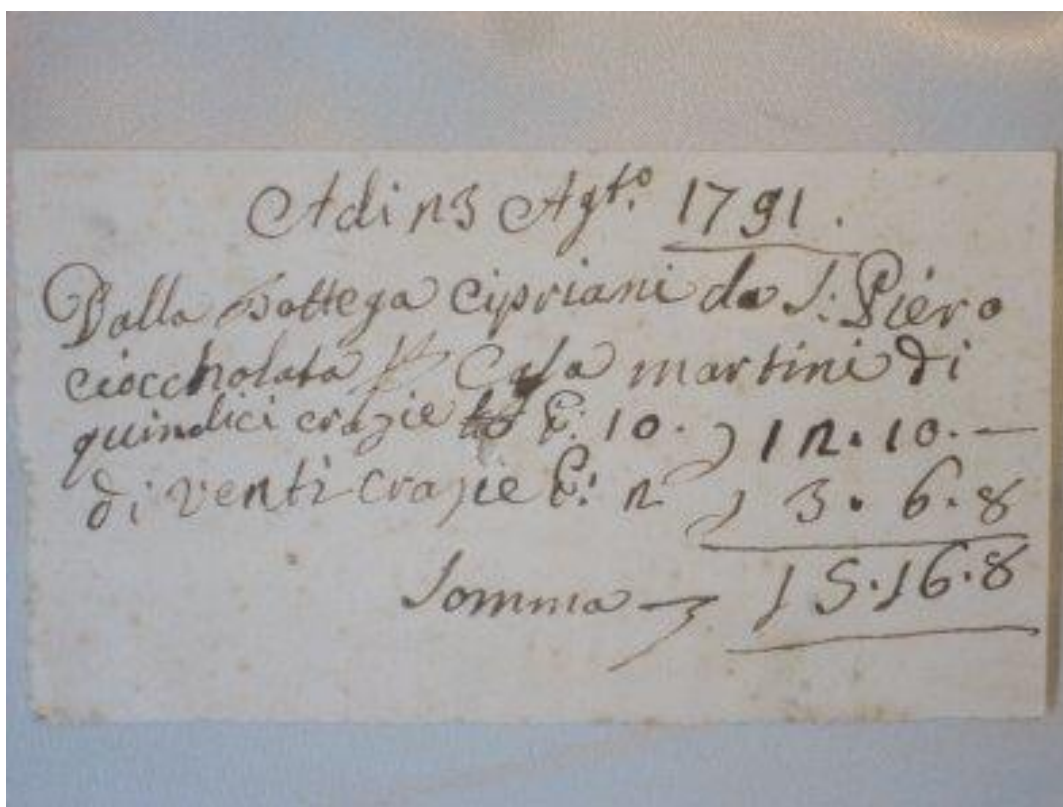 Adi 23 Agto. 1791.
Dalla Bottega Cipriani da S: Piero
cioccholata p Casa martini di
quindici crazie £: 10. 12.10.—
di venti crazie £: 2 3.6.8
Somma 15.16.8